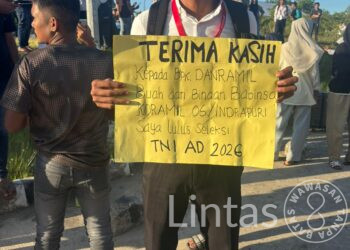 TERIMA KASIH
Kepada Bpk. DANRAMIL
Buah dan Binaan Babinsa
KORAMIL 05/INDRAPURI
Saya Lulus Seleksi
TNI AD 2026
Lintas
WAWASAN TANPA BATAS